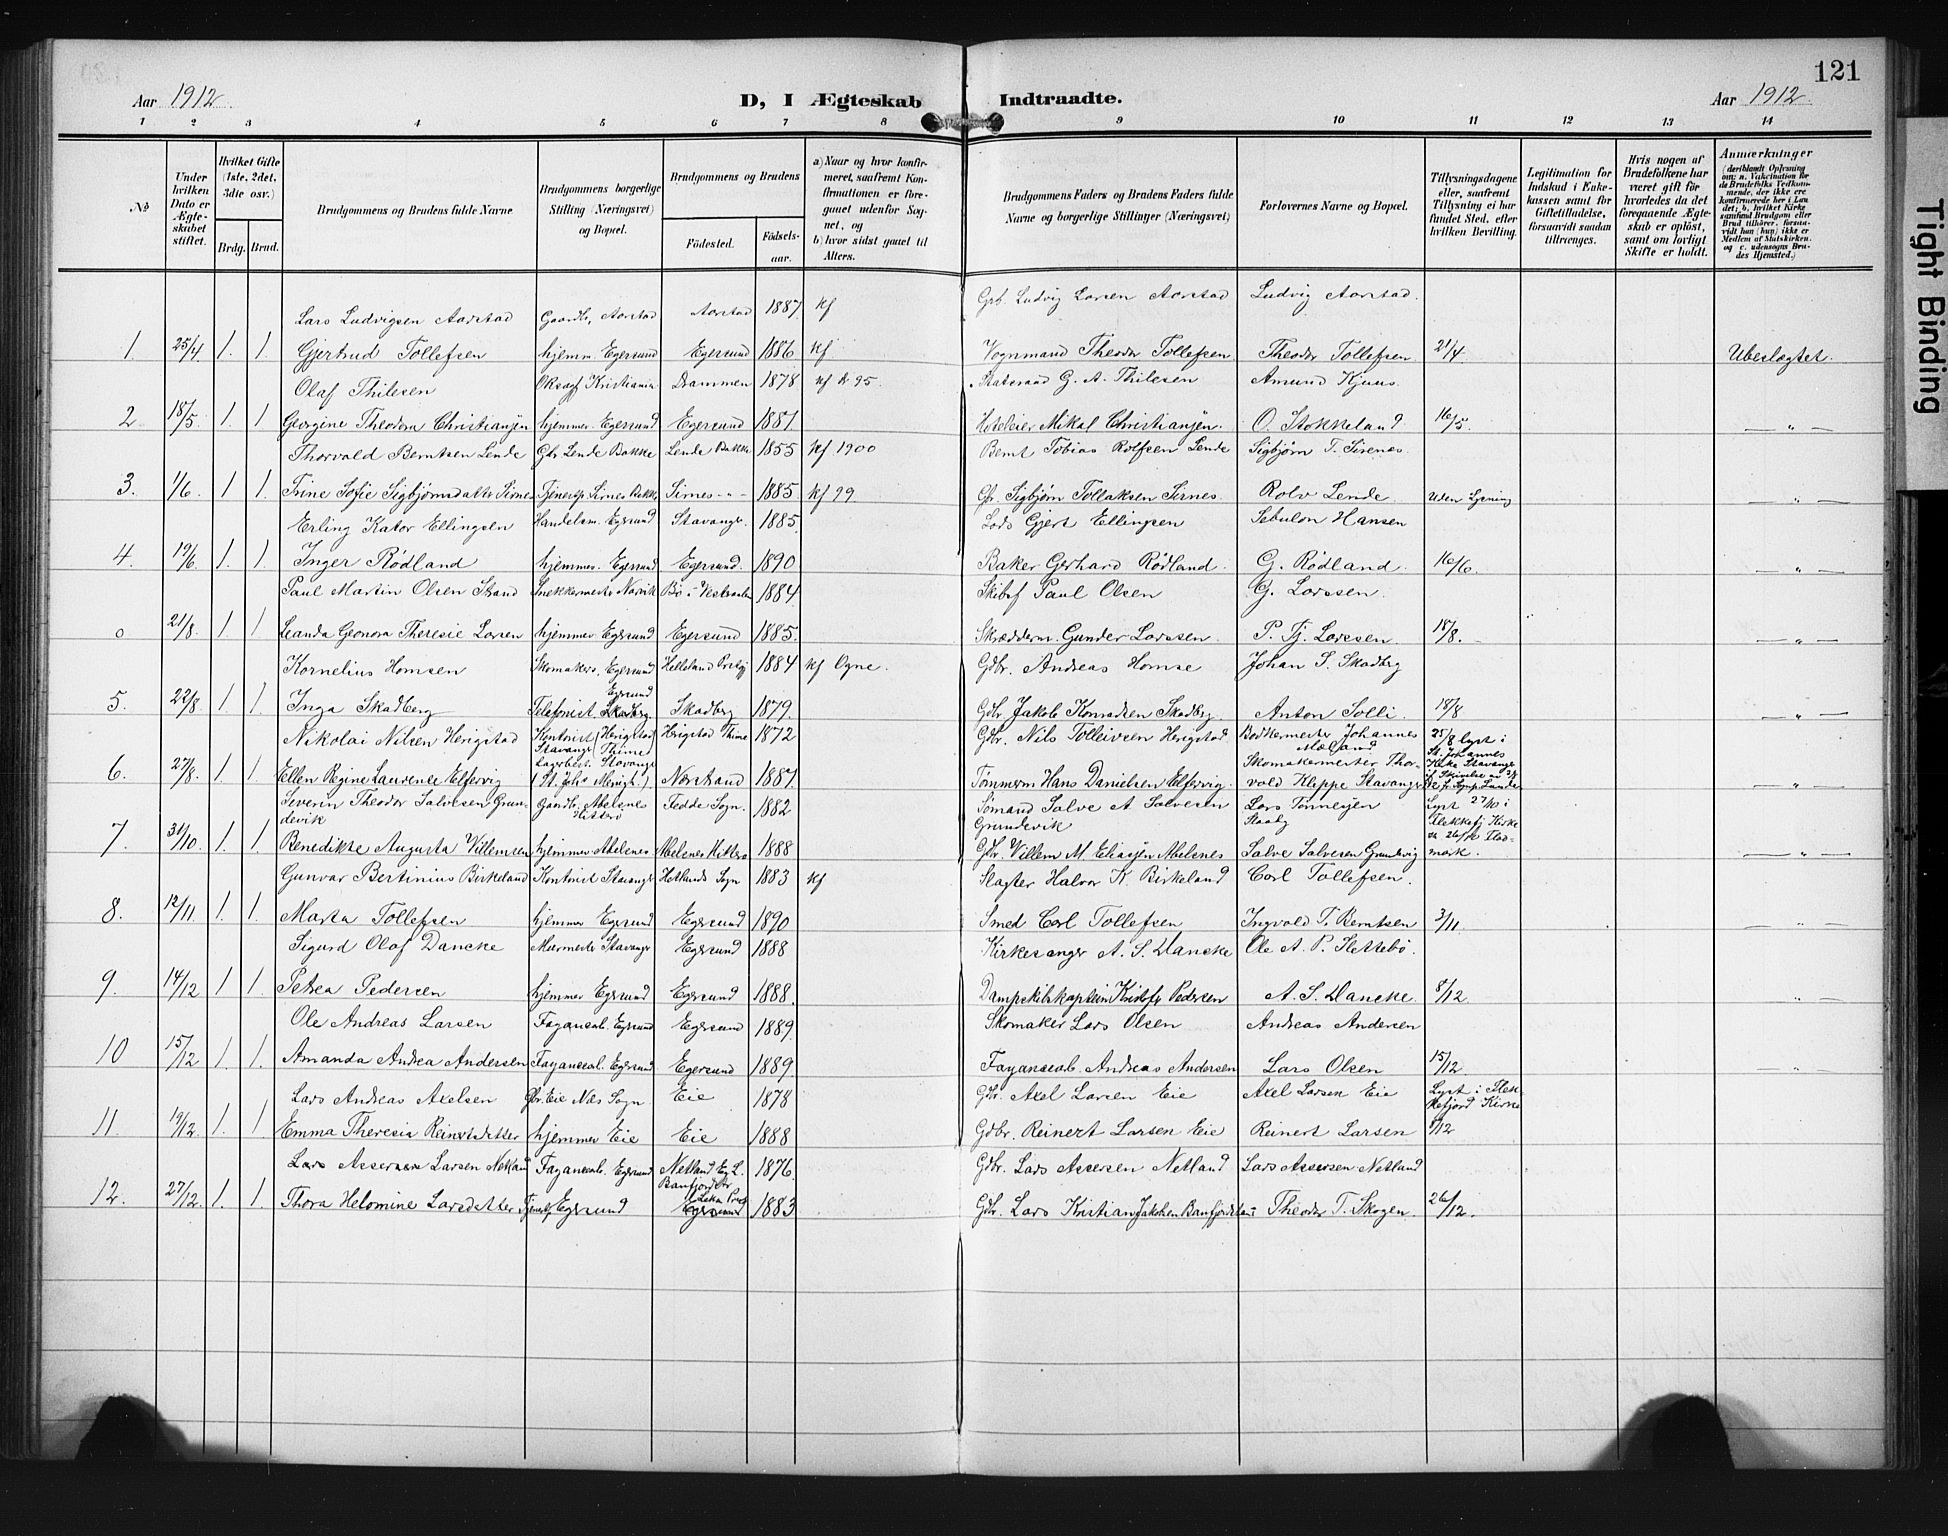 121
Aar 1912.
D, I Ægteskab Indtraadte.
Aar 1912.
1 2 3 4 5 6 7 8 9 10 11 12 13 14
№
Under hvilken Dato er Ægteskabet stiftet.
Hvilket Gifte (1ste, 2det, 3die osv.)
Brdg. Brud.
Brudgommens og Brudens fulde Navne
Brudgommens borgerlige Stilling (Næringsvei) og Bopæl.
Brudgommens og Brudens
Fødested.
Fødselsaar.
a) Naar og hvor konfirmeret, saafremt Konfirmationen er foregaaet udenfor Sognet, og
b) hvor sidst gaaet til Alters.
Brudgommens Faders og Brudens Faders fulde Navne og borgerlige Stillinger (Næringsvei)
Forlovernes Navne og Bopæl.
Tillysningsdagene eller, saafremt Tillysning ei har fundet Sted, efter hvilken Bevilling.
Legitimation for Indskud i Enkekassen samt for Giftetilladelse, forsaavidt saadan tiltrænges.
Hvis nogen af Brudefolkene har været gift før hvorledes da det foregaaende Ægteskab er opløst, samt om lovligt Skifte er holdt.
Anmærkninger
(deriblandt Oplysning om: a. Vakcination for de Brudefolks Vedkommende, der ikke ere konfirmerede her i Landet; b. hvilket Kirkesamfund Brudgom eller Brud tilhører, forsaavidt han (hun) ikke er Medlem af Statskirken, og c. udensogns Brudes Hjemsted.)
Lars Ludvigsen Aarstad Gaardb., Aarstad Aarstad 1887 kf Grb. Ludvig Larsen Aarstad Ludvig Aarstad.
1. 25/4 1. 1. Gjertrud Tollefsen hjemm. Egersund Egersund 1886 kf Vognmand Theodor Tollefsen Theodor Tollefsen 21/4. Ubeslægtet.
Olaf Thilesen Kristiania Drammen 1878 G. A. Thilesen Amund Kjuus.
2 18/5. 1 1 Georgine Theodora Christiansen hjemmev. Egersund Egersund 1887. Mikal Christiansen. O. Stokkeland 16/5. — " —
Thorvald Berntsen Lende Gbr. Lende Bakke Lende Bakke 1855 kf 1900 Bernt Tobias Rolfsen Lende Sigbjørn T. Sirenes.
3. 1/6. 1 1. Trine Sofie Sigbjørnsdatter Sirnes Tjenersp. Sirnes Bakke Sirnes - " - 1885 kf 99 Gbr. Sigbjørn Tollaksen Sirnes. Rolv Lende. Uden Lysning — " —
Erling Kator Ellingsen Handelsm. Egersund Stavanger. 1885. Lods Gjert Ellingsen Sebulon Hansen
4. 19/6. 1. 1. Inger Rødland hjemmev. Egersund Egersund. 1890 Baker Gerhard Rødland. G. Rødland. 16/6. — " —
Paul Martin Olsen Strand Snekkermester Narvik Bø i Vesteraalen 1884. Paul Olsen G. Larssen.
0 21/8. 1. 1 Leanda Geonora Theresie Larsen hjemmev. Egersund Egersund 1885. Skrædderm. Gunder Larssen. P. Tj. Larssen 18/8. — " —
Kornelius Homsen Skomakers. Egersund Helleland Præstegj 1884 kf Ogne. Gdbr. Andreas Homse Johan S. Skadberg
5. 22/8. 1. 1. Inga Skadberg Telefonist Egersund Skadberg Skadberg 1879. Gdbr. Jakob Konradsen Skadberg. Anton Solli. 18/8 — " —
Nikolai Nilsen Herigstad Kontorist (Herigstad Stavanger Thime) Herigstad Thime 1872 Gbr. Nils Tolleivsen Herigstad. Bødkermester Johannes Mæland 25/8 lyst i St. Johannes Kirke Stavanger
6. 27/8. 1. 1. Ellen Regine Laurense Elfervig Lagerbest. Stavanger (St. Joh's Menigh.) Norstrand 1887. Tømmerm. Hans Danielsen Elfervig. Skomakermester Thorvald Kleppe Stavanger — " —
Severin Theodor Salvesen Grundevik Gaardbr. Abelsnes Hitterø Fedde Sogn. 1882 Sømand Salve A. Salvesen Grundevik Lars Tønnesen Lyst 27/10 i Flekkefj Kirke
7. 31/10. 1. 1. Benedikte Augusta Villemsen hjemmev. Abelsnes Abelsnes Hitterø 1888 Gdbr. Villem M. Eliassen Abelsnes Salve Salvesen Grundevig — " —
Gunvar Bertinius Birkeland Kontorist Stavanger Hetlands Sogn 1883 kf Slagter Halvor K. Birkeland Carl Tollefsen.
8. 12/11 1. 1. Marta Tollefsen hjemmev Egersund Egersund 1890 Smed Carl Tollefsen Ingvald T. Berntsen 3/11. "
Sigurd Olaf Dancke Stavanger Egersund 1888 Kirkesanger A. S. Dancke Ole A. P. Slettebø.
9. 14/12 1 1. Petrea Pedersen hjemmev Egersund Egersund 1888. Dampskibskaptein Kristofer Pedersen A. S. Dancke. 8/12. — " —
Ole Andreas Larsen Fayancearb. Egersund Egersund 1889. Skomaker Lars Olsen Andreas Andersen
10 15/12 1. 1. Amanda Andrea Andersen Fayancearb. Egersund Egersund 1889. Fayancearb. Andreas Andersen Lars Olsen 15/12. — " —
Lars Andreas Axelsen Gbr. Eie Næs Sogn. Eie 1878 Gbr. Axel Larsen Eie Axel Larsen Eie Lyst i Flekkefjord Kirke
11. 19/12. 1. 1. Emma Theresia Reinertsdatter hjemmev Eie Eie 1888 Gdbr. Reinert Larsen Eie Reinert Larsen 8/12
Lars Assersen Larsen Netland Fayancearb. Egersund Netland Eg. L. 1876. Gdbr. Lars Assersen Netland Lars Assersen Netland
12. 27/12. 1. 1. Thora Helomine Larsdatter Tjenesp. Egersund Leka Prg 1883 Gdbr. Lars Kristian Jakobsen Theodor T. Skogen. 26/12.
Tight Binding